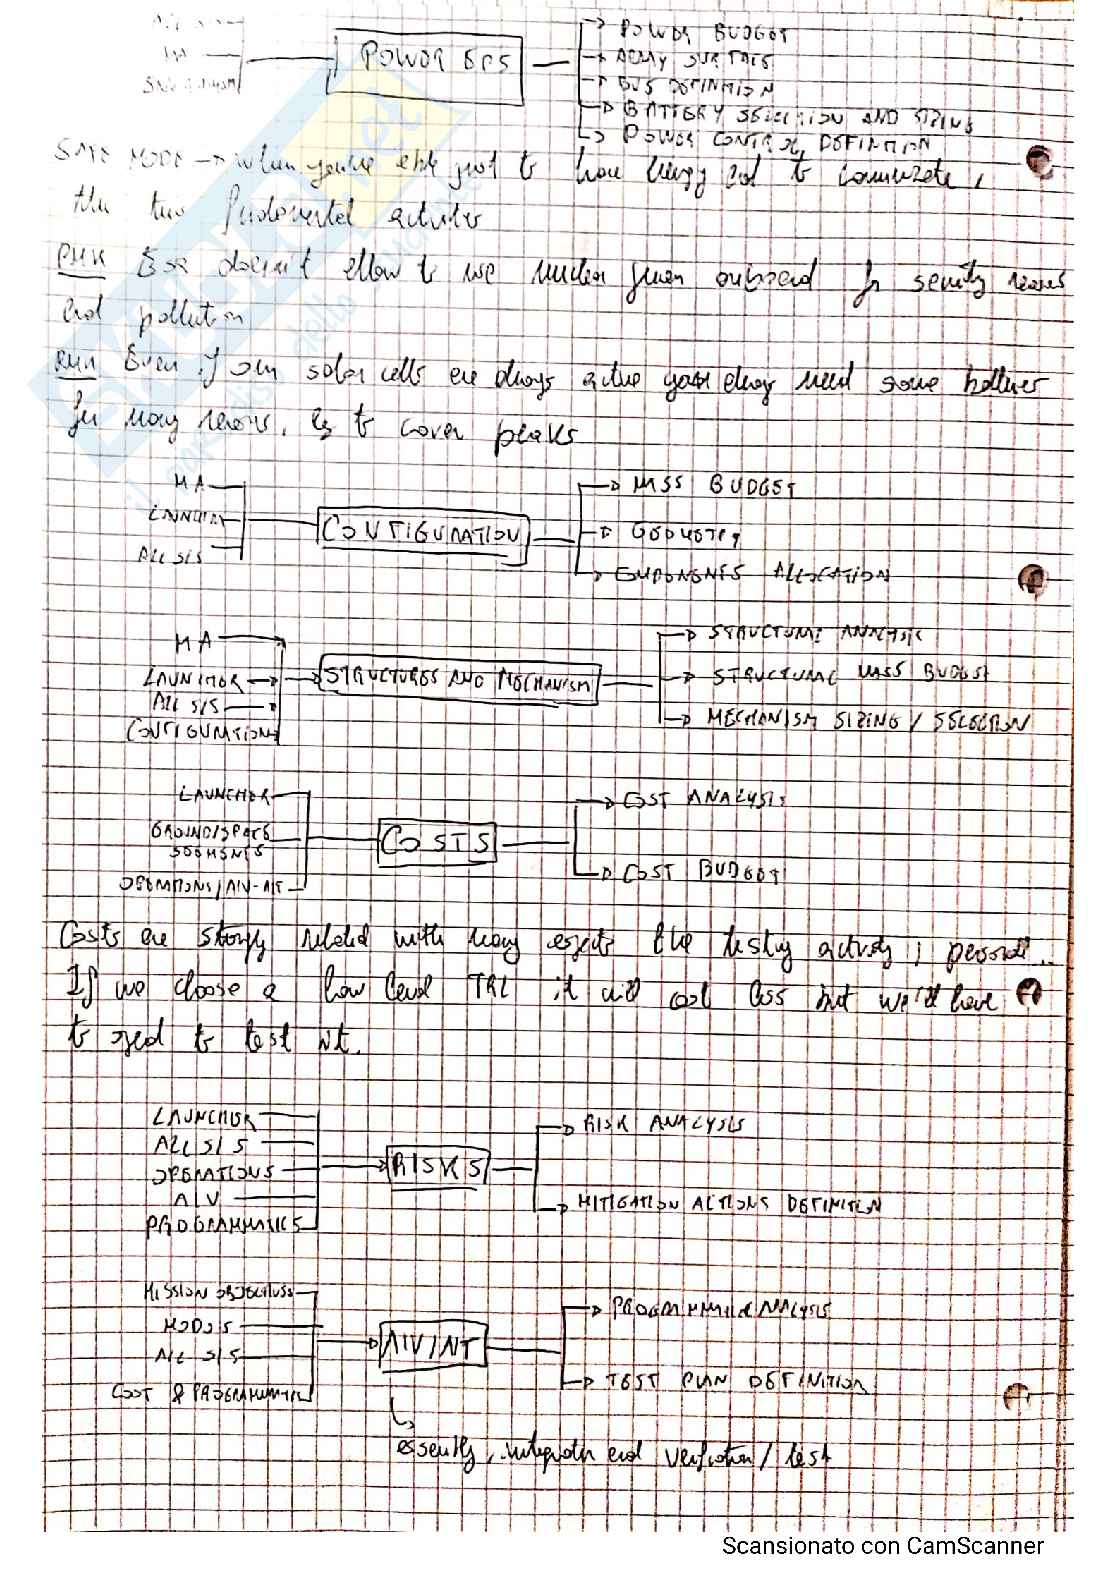 MA
POWER EPS
POWER BUDGET
ARRAY SURFACE
BUS DEFINITION
BATTERY SELECTION AND SIZING
POWER CONTROL DEFINITION
SAFE MODE → when you're able just to have energy and to communicate,
the two fundamental activities
RMK Esa doesn't allow to use nuclear power onboard for security reasons
and pollution
RMK Even if your solar cells are always active you always need some batteries
for many reasons, eg to cover peaks
MA
LAUNCHER
ALL S/S
CONFIGURATION
MASS BUDGET
GEOMETRY
COMPONENTS ALLOCATION
MA
LAUNCHER
ALL S/S
CONFIGURATION
STRUCTURES AND MECHANISM
STRUCTURAL ANALYSIS
STRUCTURAL MASS BUDGET
MECHANISM SIZING / SELECTION
LAUNCHER
GROUND/SPACE
SEGMENTS
OPERATIONS/AIV-AIT
COSTS
COST ANALYSIS
COST BUDGET
Costs are strongly related with many aspects like testing activity, personal...
If we choose a low level TRL it will cost less but we'll have
to spend to test it.
LAUNCHER
ALL S/S
OPERATIONS
AIV
PROGRAMMATICS
RISKS
RISK ANALYSIS
MITIGATION ACTIONS DEFINITION
MISSION OBJECTIVES
MODES
ALL S/S
COST & PROGRAMMATIC
AIV/AIT
PROGRAMMATIC ANALYSIS
TEST PLAN DEFINITION
assembly, integration and verification / test
Scansionato con CamScanner